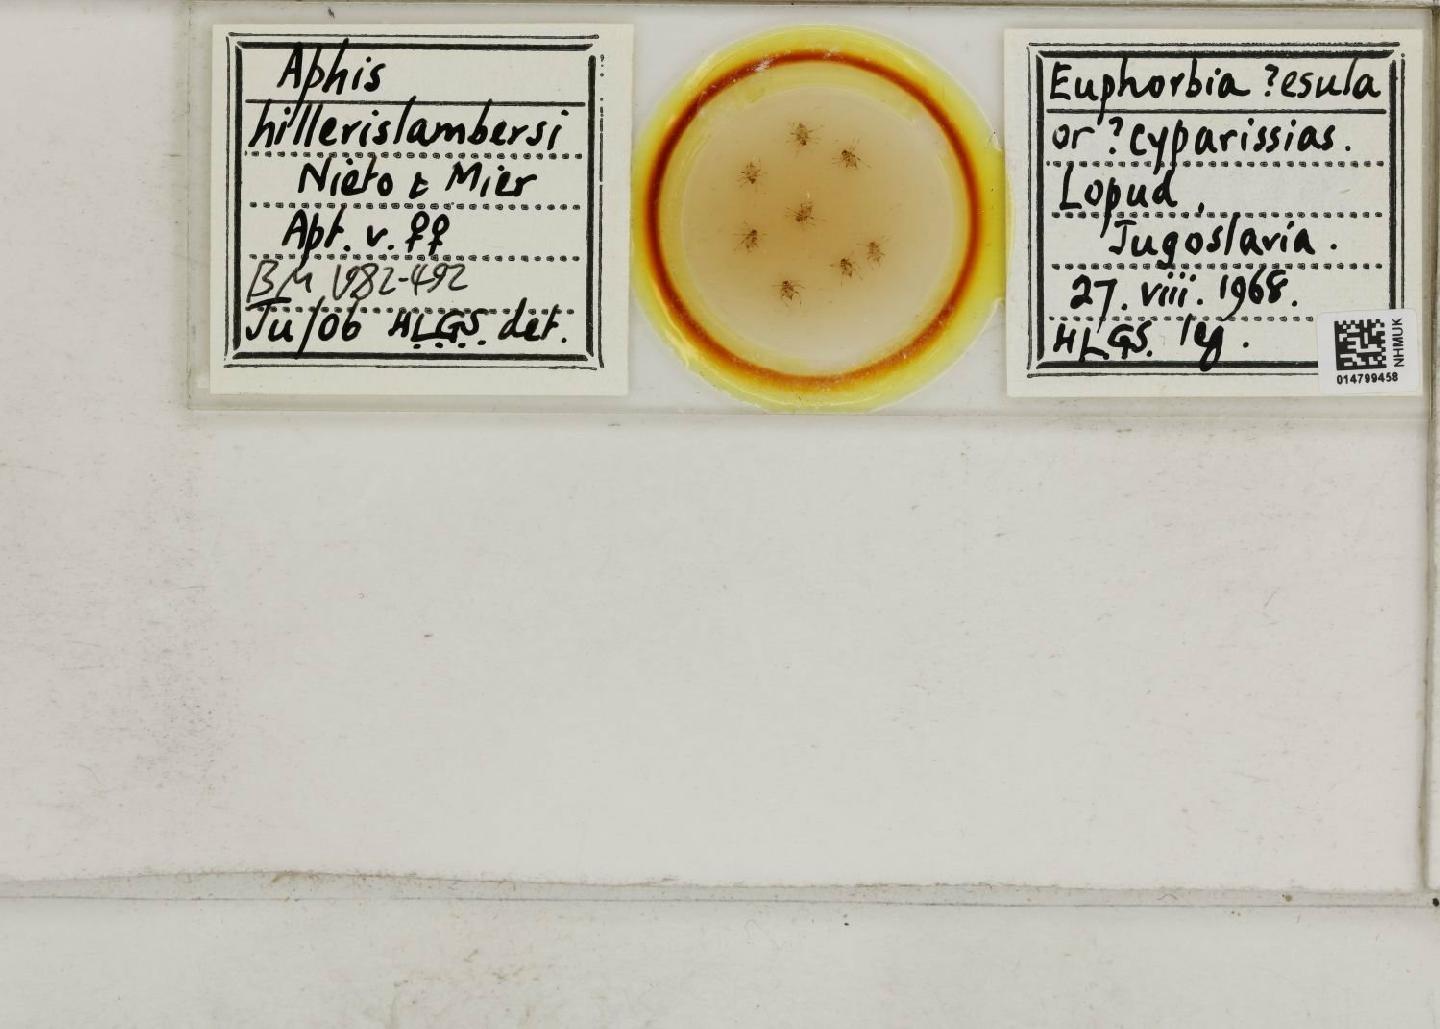 Aphis
hillerislambersi
Nieto & Mier
Apt. v. ♀♀
BM 1982-492
Ju/06 H.L.G.S. det.
Euphorbia ?esula
or ?cyparissias.
Lopud,
Jugoslavia.
27. viii. 1968.
H.L.G.S. leg.
NHMUK
014799458